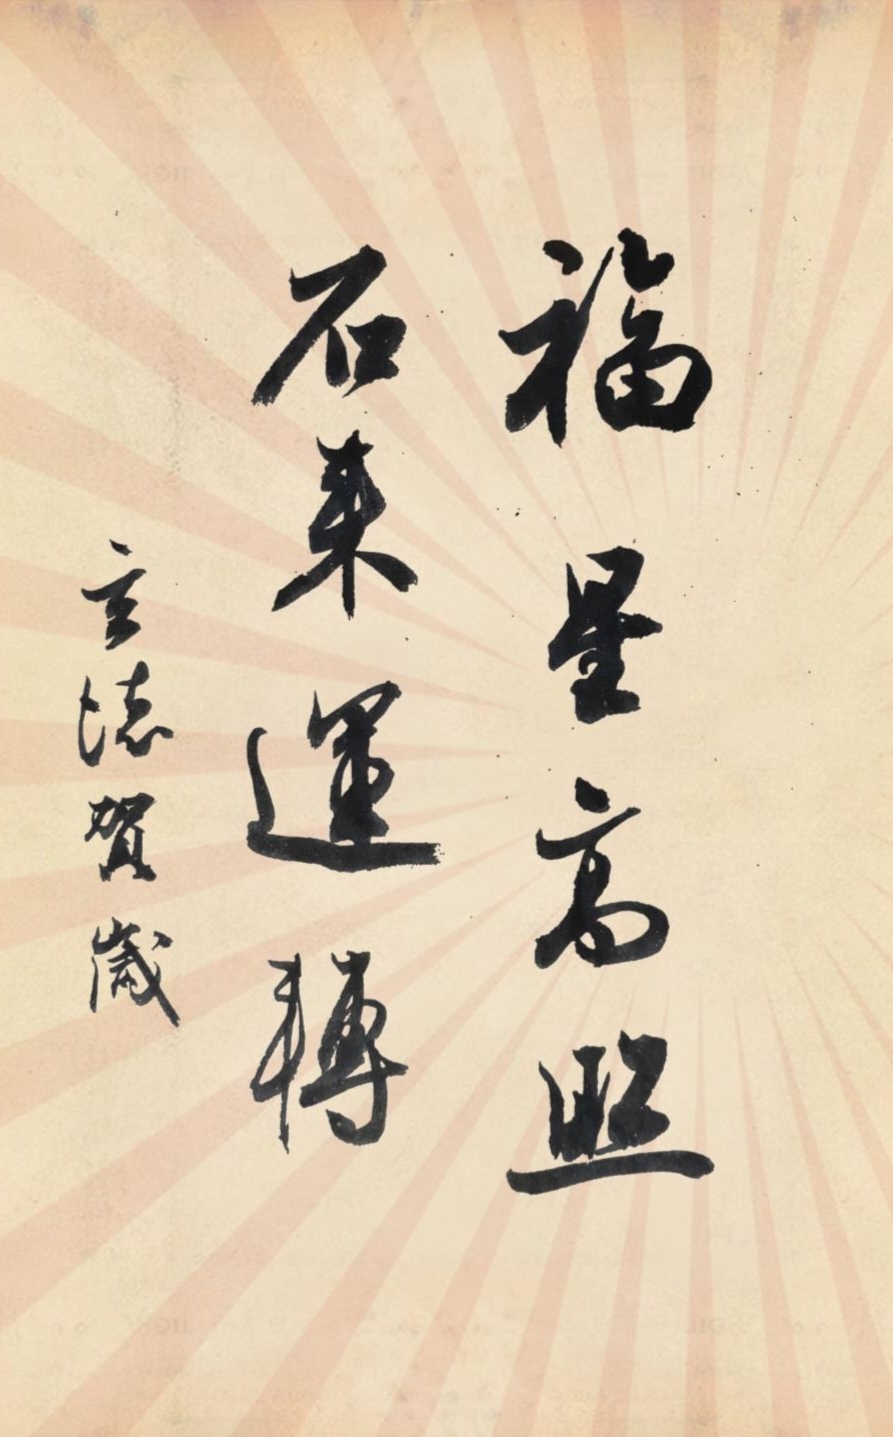 福星高照
石来運轉
玄德賀歲